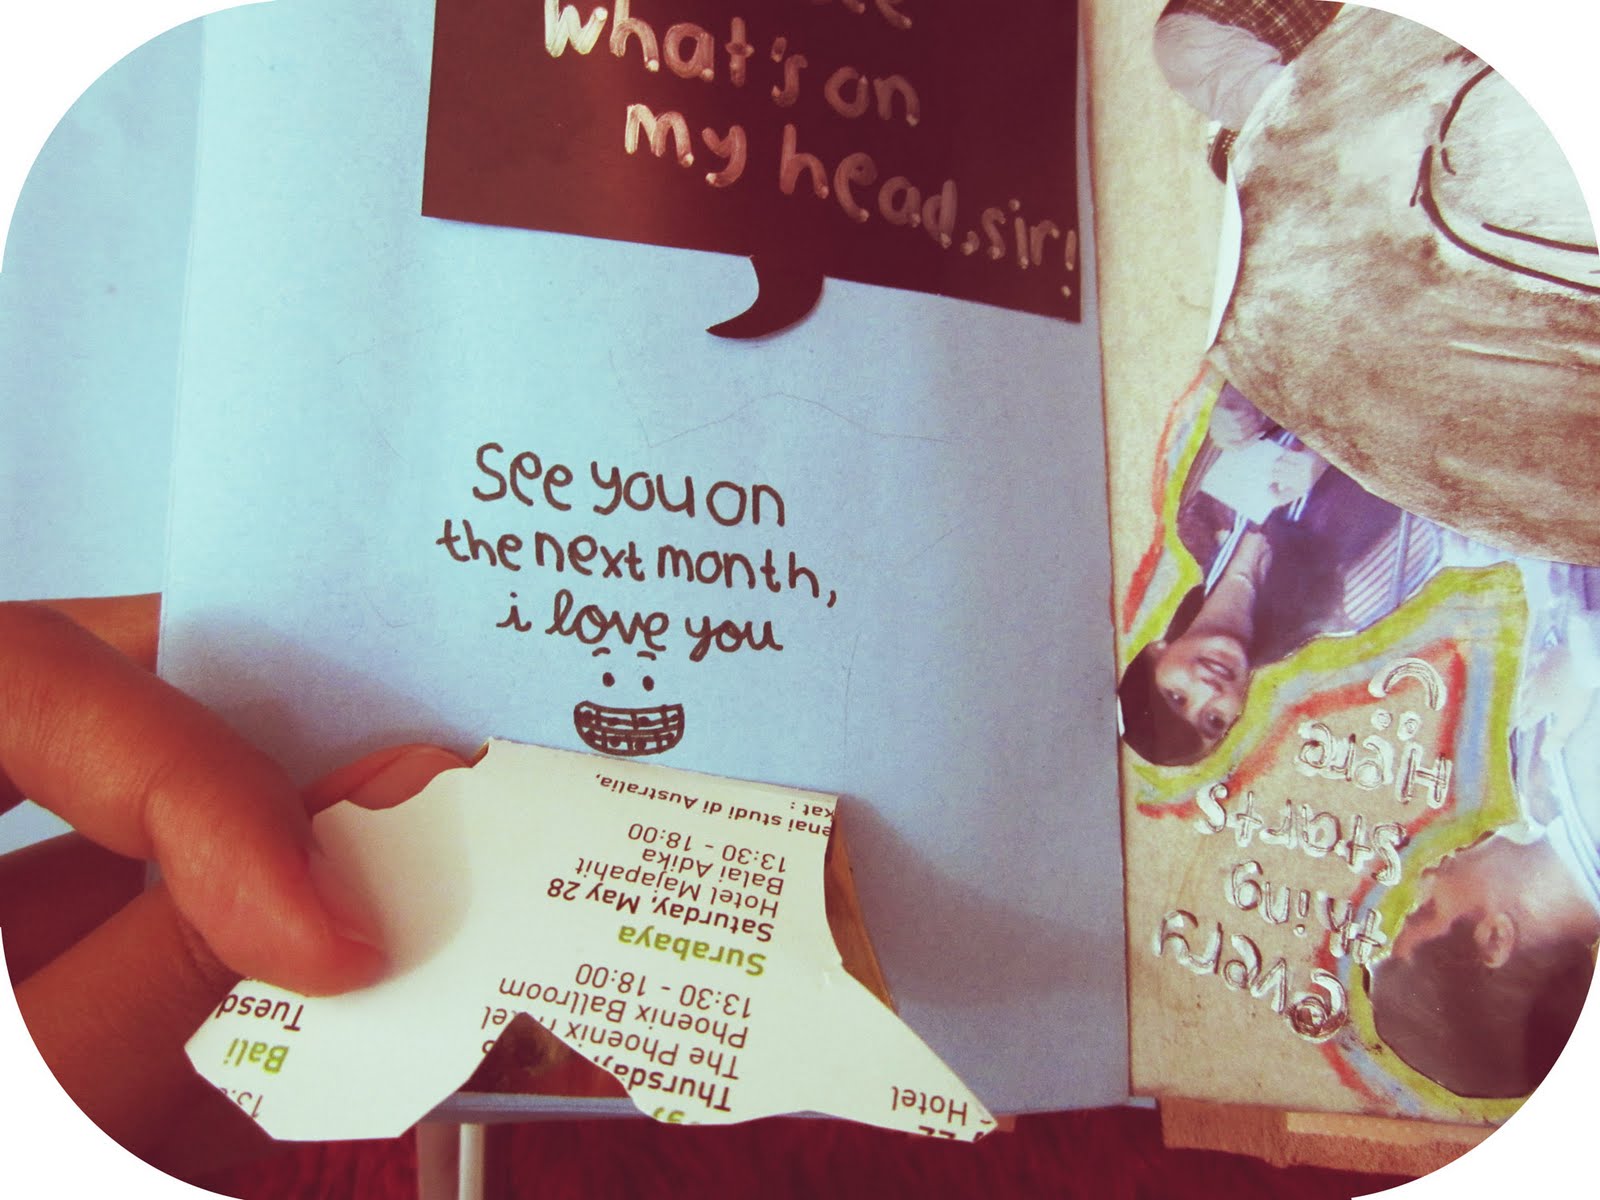 what's on
my head, sir!
See you on
the next month,
i love you
every
thing
starts
Here
Hotel
Thursday,
The Phoenix Hotel
Phoenix Ballroom
13:30 - 18:00
Surabaya
Saturday, May 28
Hotel Majapahit
Balai Adika
13:30 - 18:00
enai studi di Australia,
kat :
Bali
Tuesd